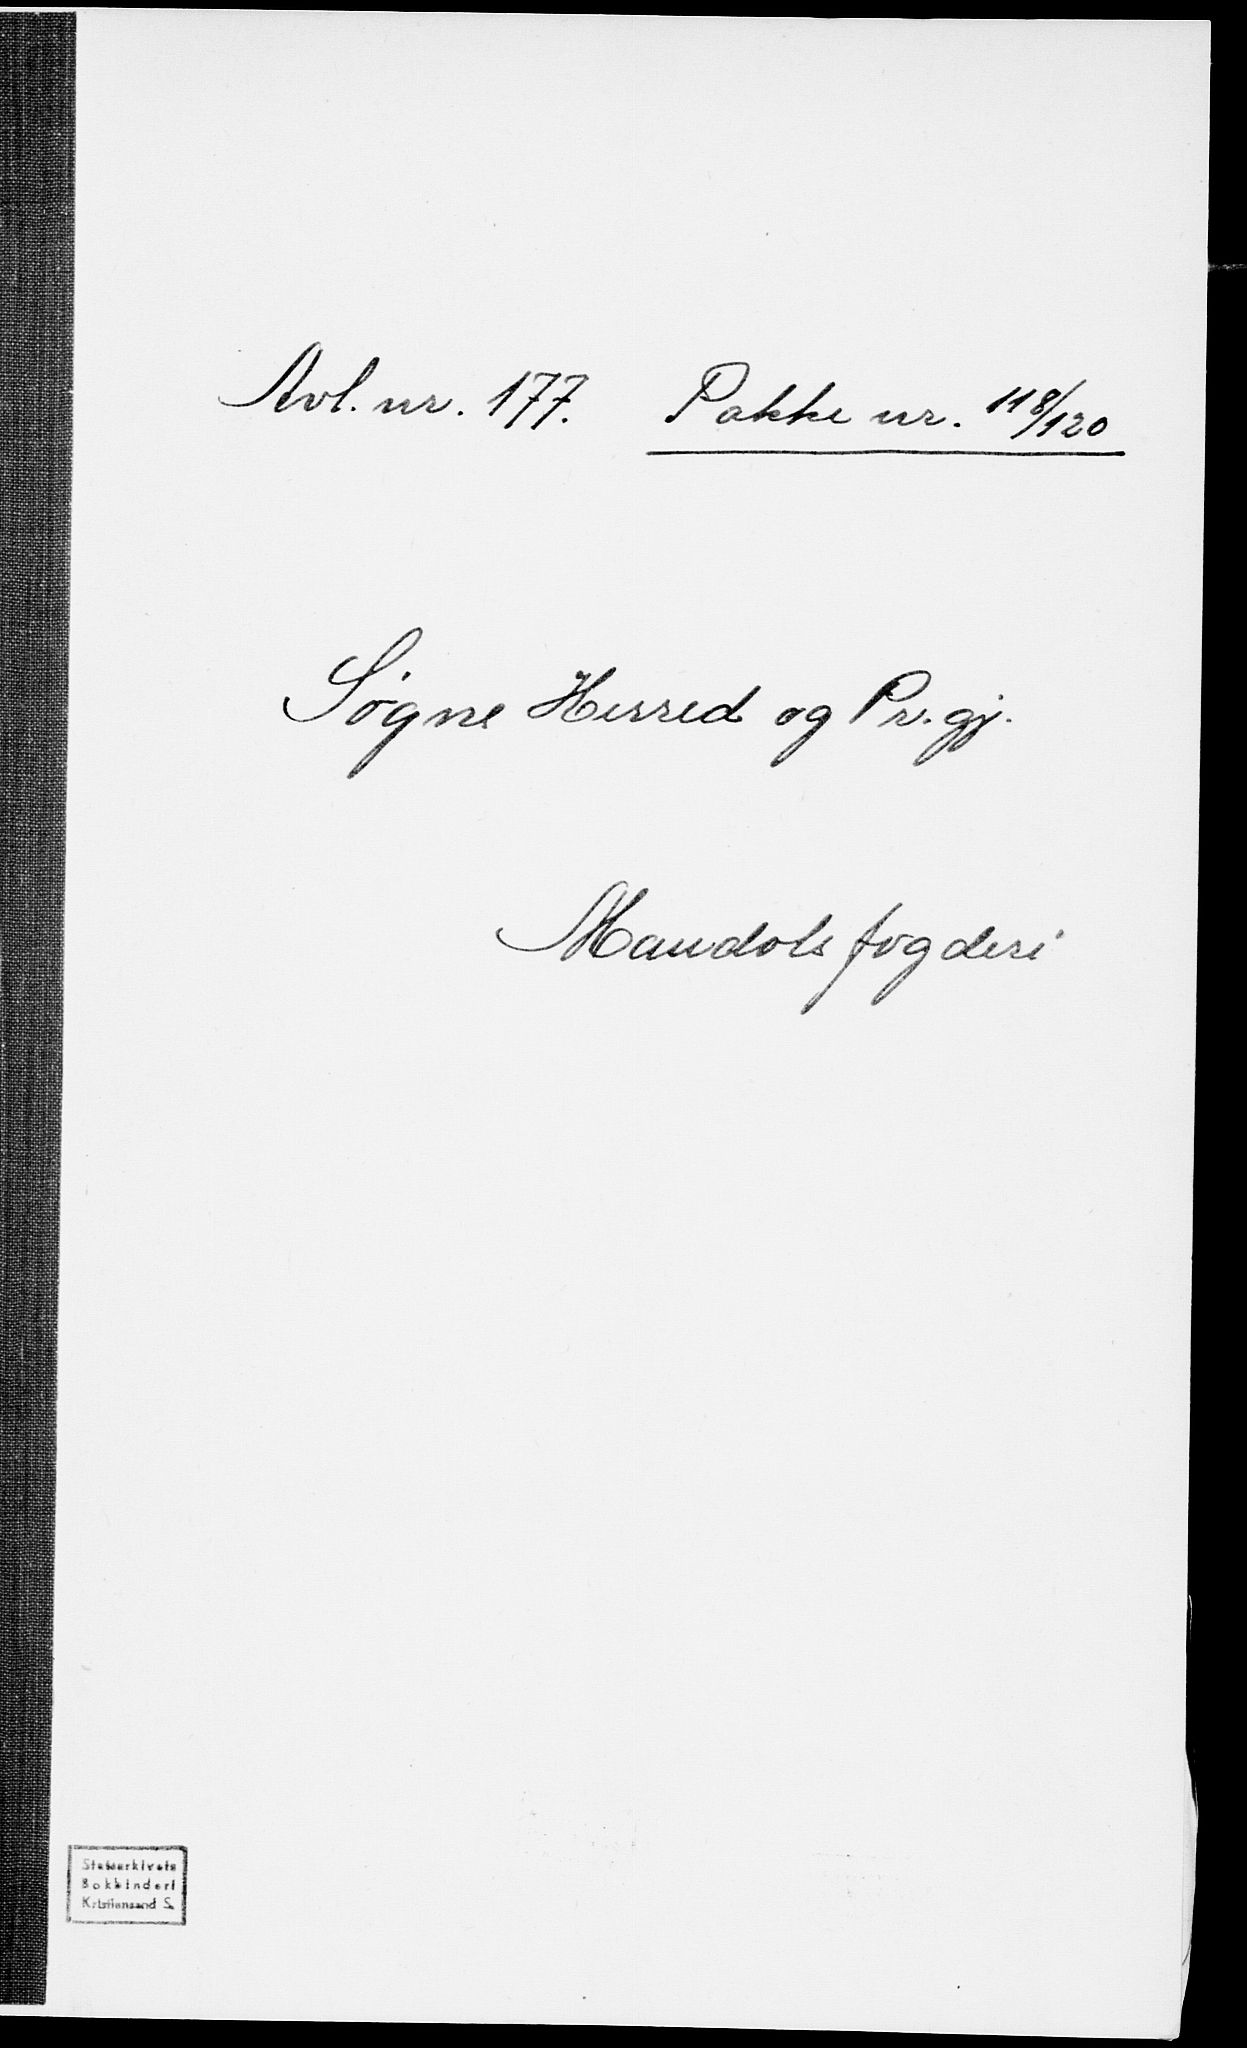 Avl. nr. 177. Pakke nr. 118/120
Søgne Herred og Pr.gj.
Mandals fogderi
Statsarkivets
Bokbinderi
Kristiansand S.